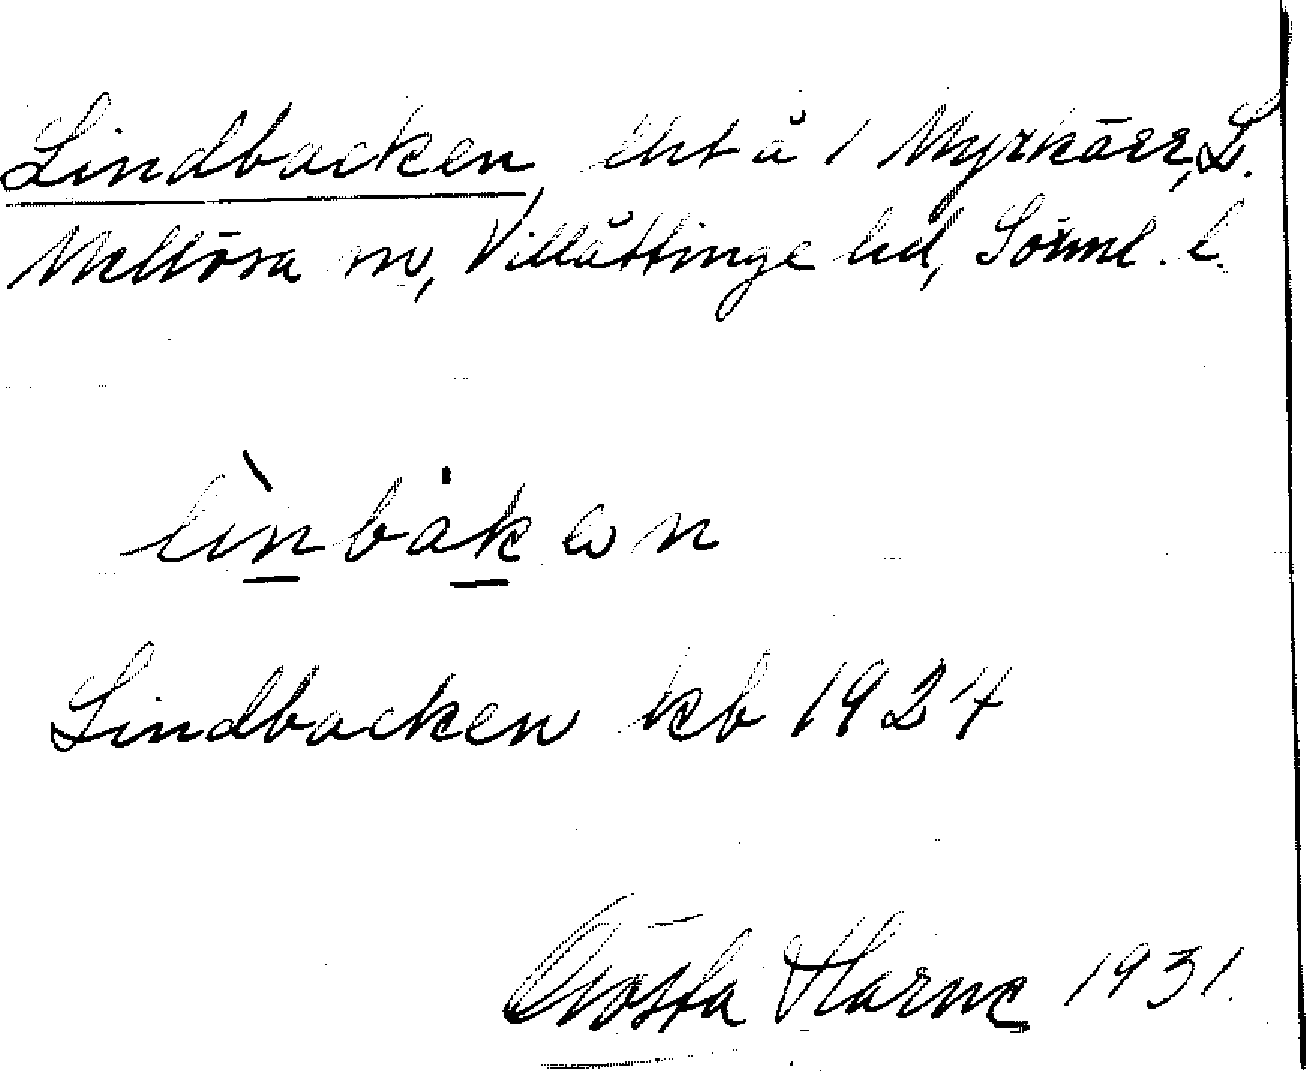 Lindbacken, lht å 1 Myrkärr, L.
Mellösa sn, Villåttinge hd, Sörml. l.
lìnbȧkən
Lindbacken kb 1924
Gösta Harne 1931.